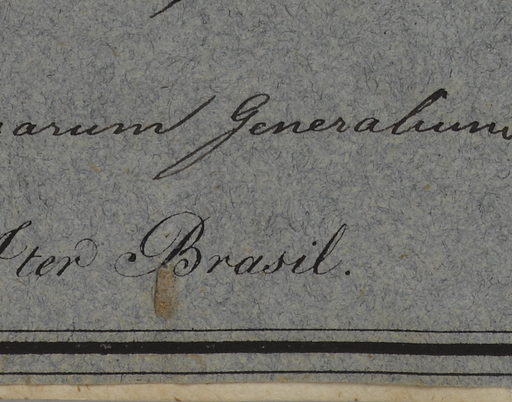 arum Generalium
Iter Brasil.